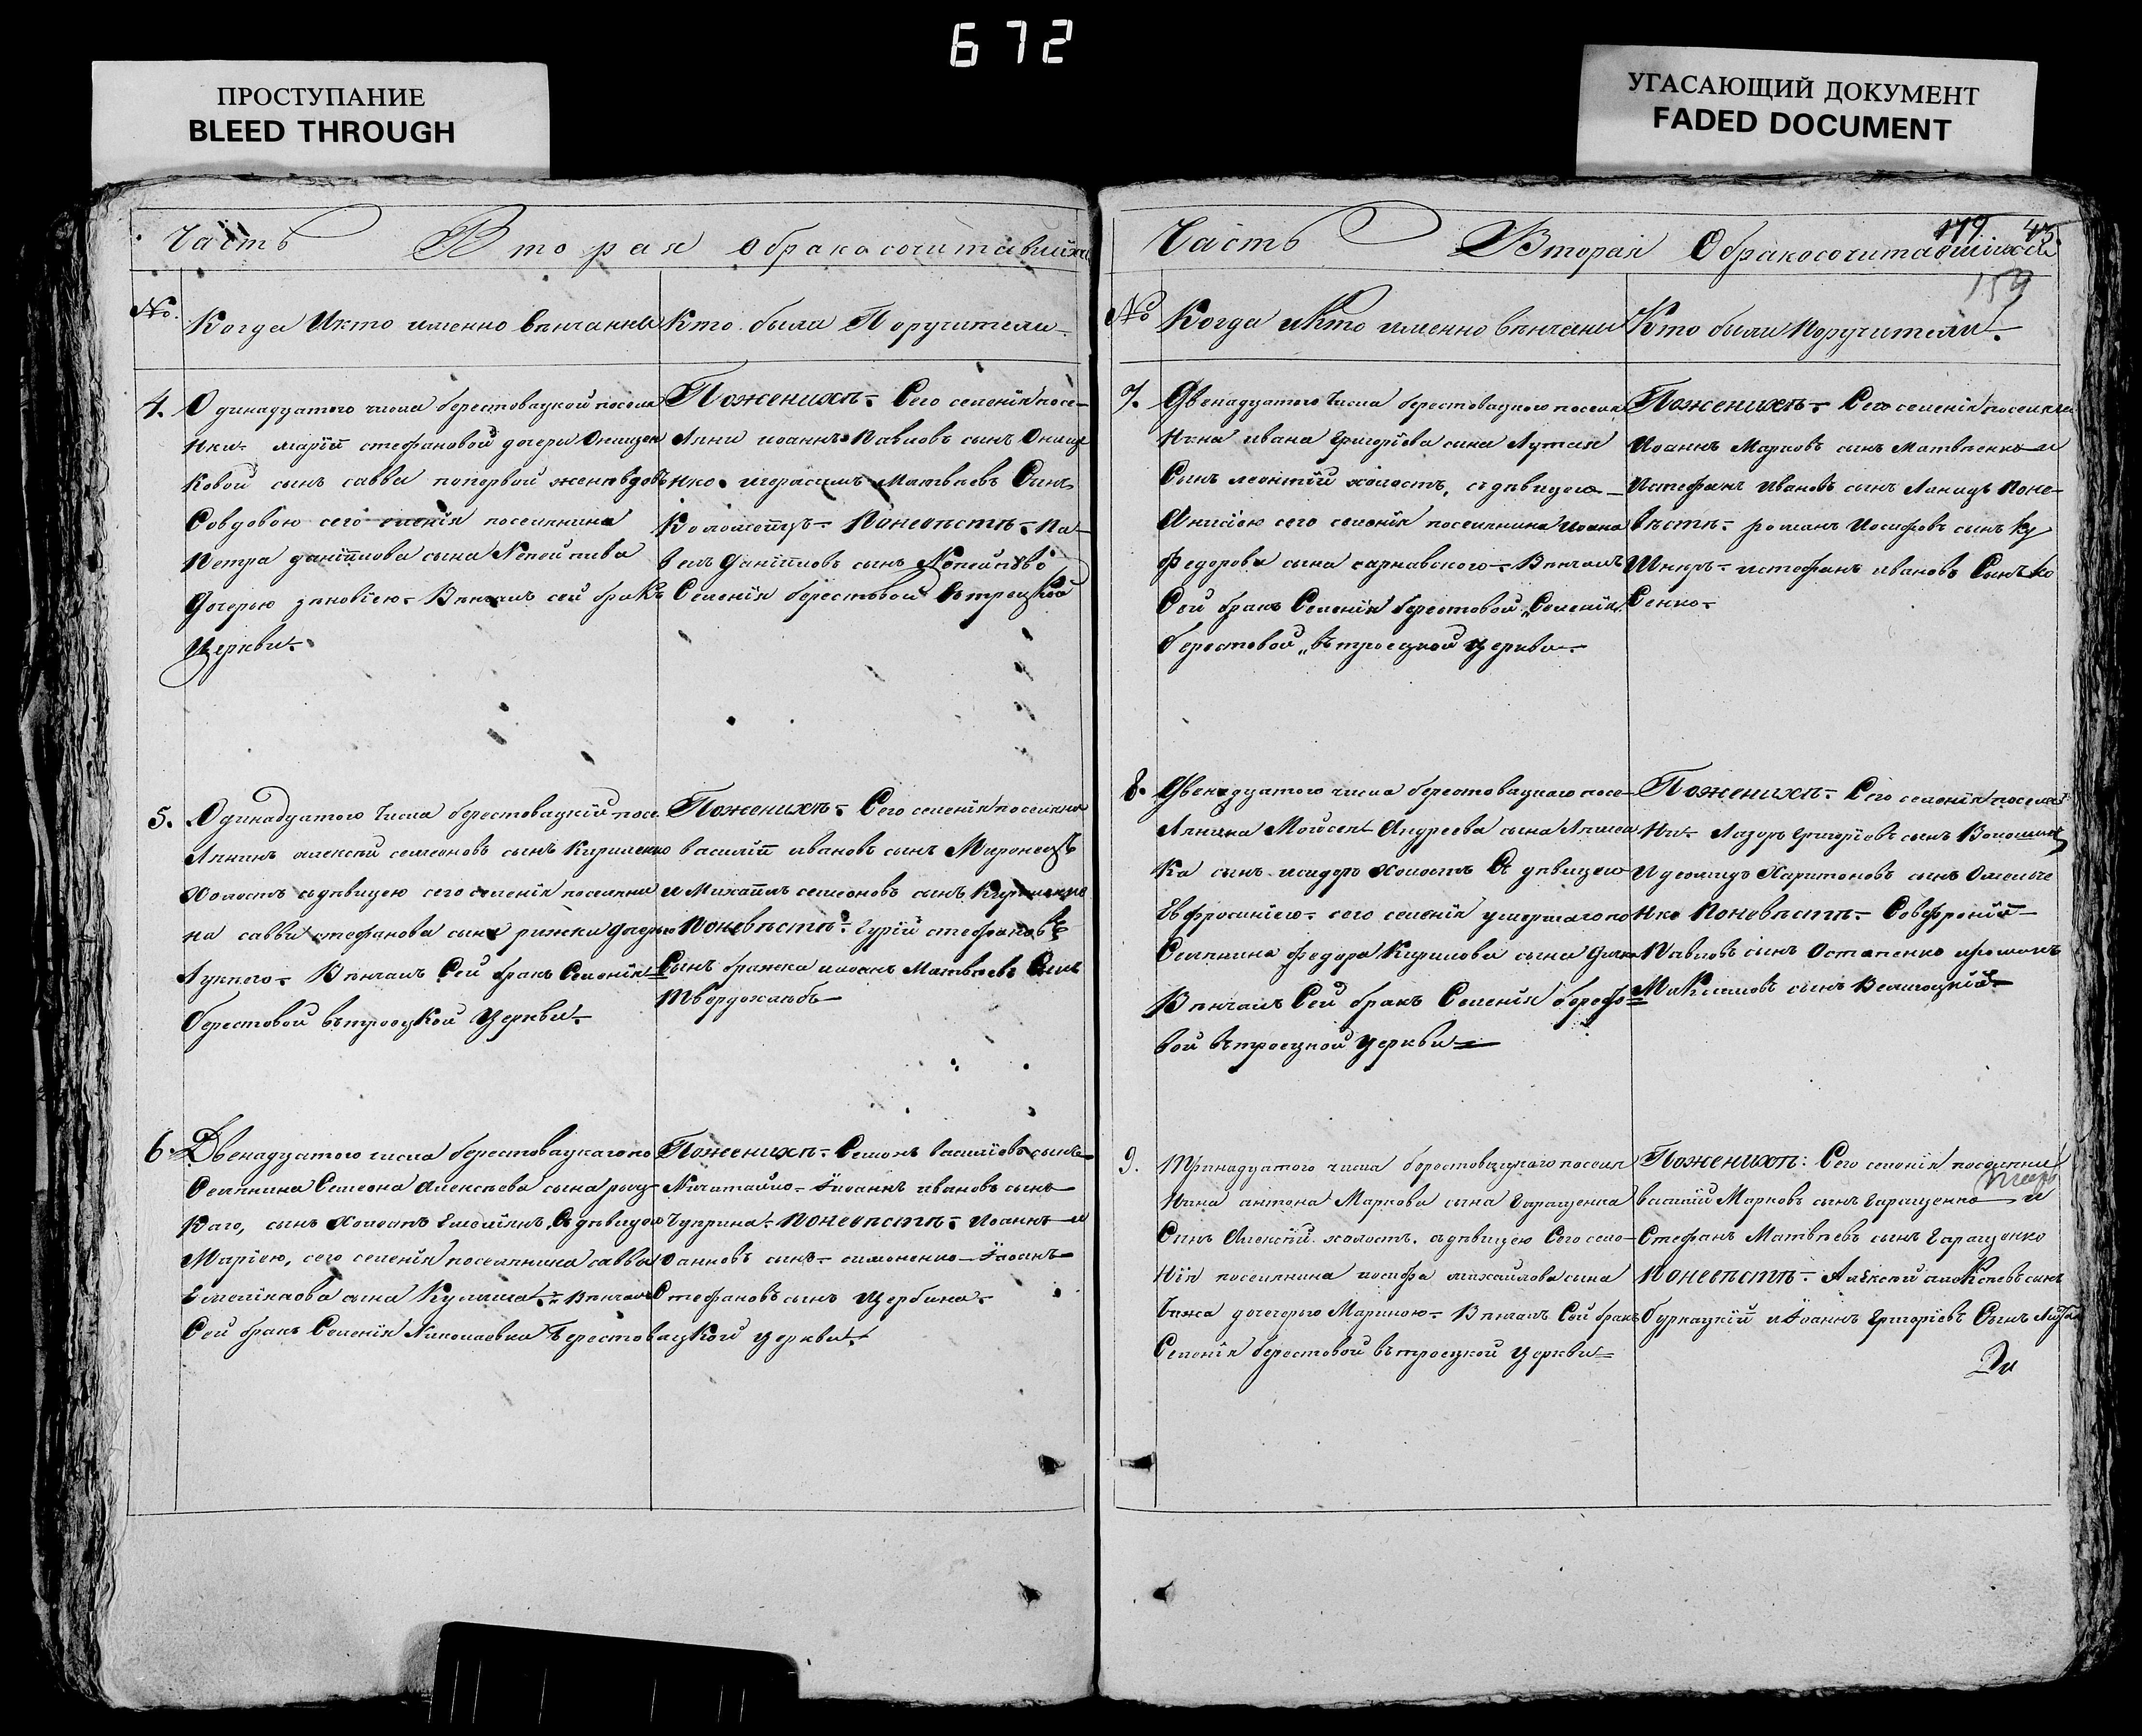 672
ПРОСТУПАНИЕ
BLEED THROUGH
УГАСАЮЩИЙ ДОКУМЕНТ
FADED DOCUMENT
Часть Вторая обракосочитавших
№. Когда Икто именно венчаны Кто были Поручители
4. Одинадцатого числа берестовацкой посел
нки марїи стефановой дочеры Онищен
ковой сынъ савва попервой женѣ вдовъ
Совдовою сего селенія поселянина
Петра данїилова сына Непейпива
Дочерью зѣновїею. Вѣнчалъ сей бракъ
Церкви.
Поженихѣ. Сего селенія посе-
ляни иоаннъ Павловъ сынъ Онище
нко. игорасимъ Матвѣевъ Сынъ
Коломеецъ. Поневѣстѣ. Па-
велъ данїиловъ сынъ Непейпиво
Селенія берестовой Втроецкой
5. Одинадцатого Числа берестовацкїй посе
лянинъ алексѣй семеоновъ сынъ Кириленко
Холостъ сдѣвицею сего селенія поселяни
на саввы стефанова сына рижки дочерью
Лукією. Вѣнчалъ Сей бракъ Селенія
берестовой въ троецкой Церкви.
Поженихѣ. Сего селенія поселяне
василїй ивановъ сынъ Миронецъ
и Михаилъ семеоновъ сынъ Кириленко
Поневѣстѣ. Гурїй стефановъ
Сынъ бражка иїоанъ Матвѣевъ Сынъ
Твердохлебъ
6. Двенадцатого числа берестовацкаго по
Селянина Семеона алексѣева сына
каго, сынъ Холостъ Емелїянъ, Сдѣвицею
Марїею, сего селенія поселянина саввы
Емелїянова сына Кулиша. Вѣнчалъ
Сей бракъ Селенія Николаевки Берестовацкой церкви.
Поженихѣ. Семонъ василїовъ сынъ
їиоаннъ ивановъ сынъ
Чуприна. Поневѣстѣ. Иоаннъ и
оанновъ сынъ симоненко їиоанъ
Стефановъ сынъ Щербина.
Часть Вторая Обракосочитавшихся
179 43.
159
№ Когда иКто именно вѣнчаны Кто были поручители.
7. Двенадцатого Числа берестовацкого поселя
нина ивана Григорїева сына Лутая
Сынъ леонтїй холостъ, сдѣвицею
Анисїею сего селенія поселянина иоана
федорова сына сарнавского. Вѣнчалъ
Сей бракъ Селенія берестовой „Селенія
берестовой „Втроецкой церкви.
Поженихѣ. Сего селенія поселяни
Иоаннъ Марковъ сынъ Матвѣенко и
Истефанъ Ивановъ сынъ Поне-
вѣстѣ. романъ Иосифовъ сынъ Ку
шниръ. истефанъ ивановъ Сынъ Ко
Сенко.
8. Двенадцатого числа берестовацкаго посе-
лянина Мойсея Андреева сына
ка сынъ исидоръ Холостъ Сдѣвицею
Евфросинїею. сего селенія умершаго по
Селянина федора Кирилова сына
Вѣнчалъ Сей бракъ Селенія берес=
вой Втроецкой церкви
Поженихѣ. Сего селенія поселя
ни. Лазорь Григорїевъ сынъ
Харитоновъ сынъ Омелче
нко Поневѣстѣ. Софронїй
Павловъ сынъ Остапенко
Максимовъ сынъ
9. Тринадцатого числа берестовацкаго поселя
нина антона Маркова сына гаращенка
Сынъ Алексїй холостъ. сдѣвицею Сего селе-
нїя поселянина иосифа михайлова сына
Чижа дочерью Мариною. Вѣнчалъ Сей бракъ
Селенія берестовой Втроецкой церкви
Поженихѣ: Сего селенія поселяни
василїй Марковъ сынъ гаращенко и
Стефанъ Матвѣевъ сынъ гаращенко
Поневѣстѣ. Алексѣй алексѣевъ сынъ
буркацкїй и Їоаннъ Григорїевъ Сынъ